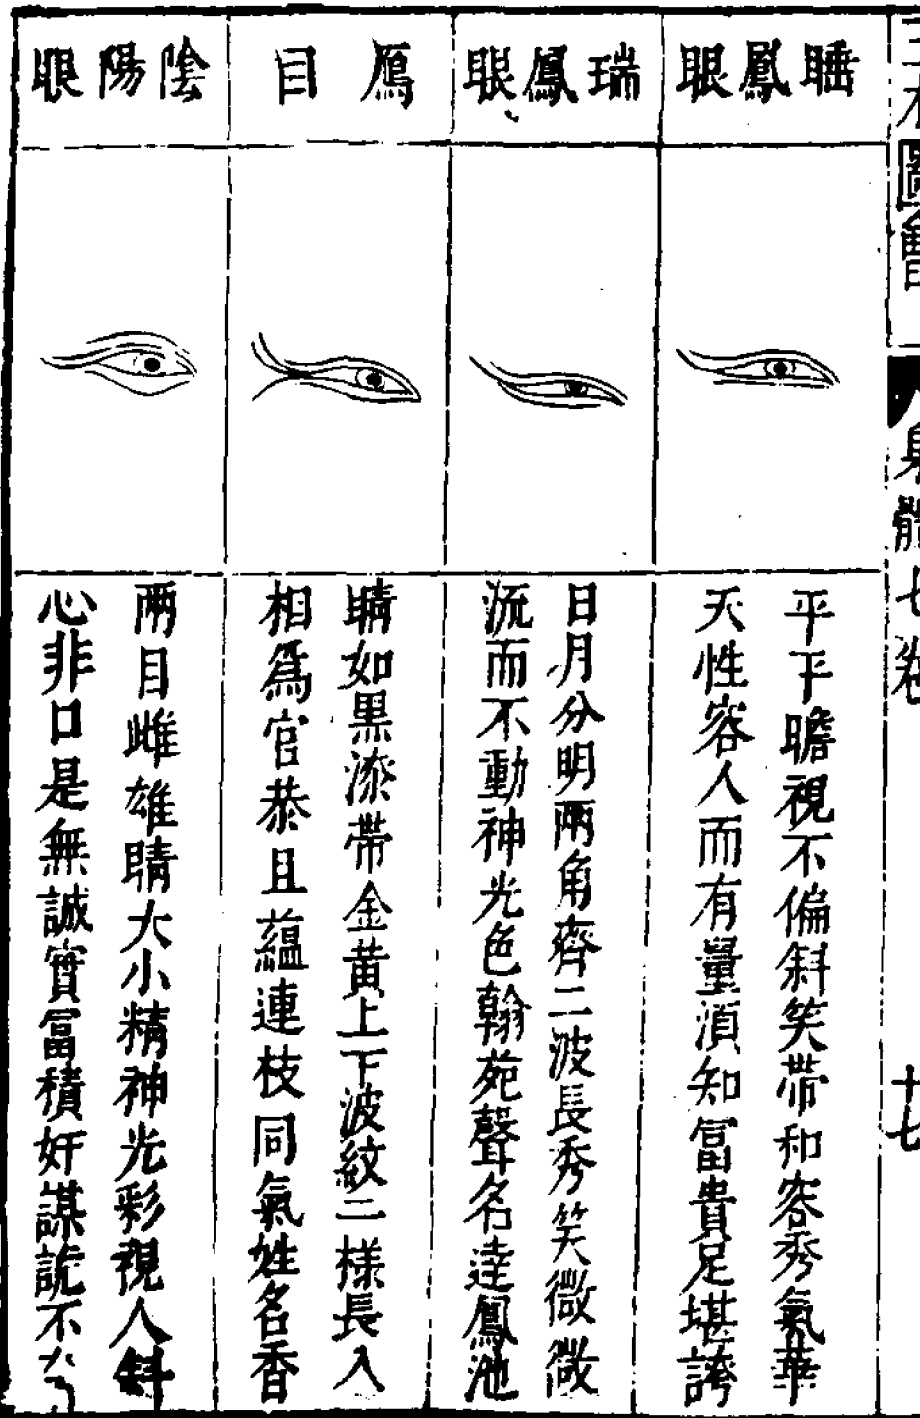 圖會
身體七卷
十七
睡鳳眼
平平瞻視不偏斜笑帶和容秀氣華
天性容人而有量須知冨貴足堪誇
瑞鳳眼
日月分明兩角齊二波長秀笑微微
流而不動神光色翰苑聲名達鳳池
鴈目
睛如黒漆帶金黄上下波紋二樣長入
相爲官恭且蘊連枝同氣姓名香
陰陽眼
兩目雌雄睛大小精神光彩視人斜
心非口是無誠實冨積奸謀詭不